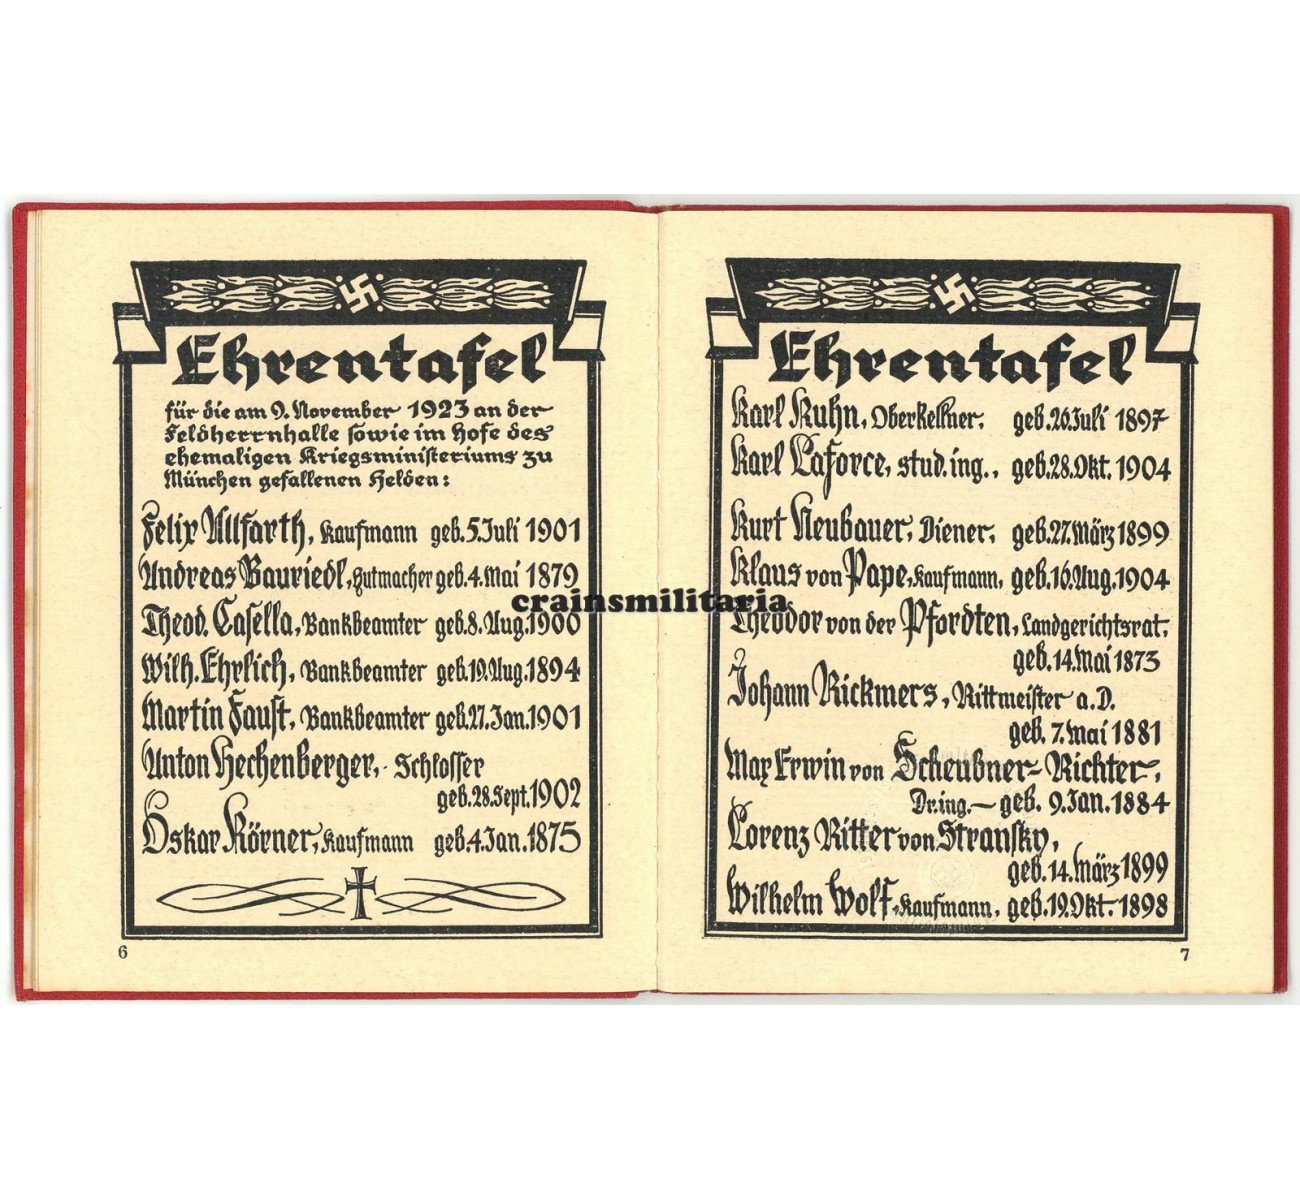 Ehrentafel
für die am 9. November 1923 an der
Feldherrnhalle sowie im Hofe des
ehemaligen Kriegsministeriums zu
München gefallenen Helden:
Felix Allfarth, Kaufmann geb. 5. Juli 1901
Andreas Bauriedl, Hutmacher geb. 4. Mai 1879
Theod. Casella, Bankbeamter geb. 8. Aug. 1900
Wilh. Ehrlich, Bankbeamter geb. 19. Aug. 1894
Martin Faust, Bankbeamter geb. 27. Jan. 1901
Anton Hechenberger, Schlosser
geb. 28. Sept. 1902
Oskar Körner, Kaufmann geb. 4. Jan. 1875
6
Ehrentafel
Karl Kuhn, Oberkellner, geb. 26. Juli 1897
Karl Laforce, stud. ing., geb. 28. Okt. 1904
Kurt Neubauer, Diener, geb. 27. März 1899
Klaus von Pape, Kaufmann, geb. 16. Aug. 1904
Theodor von der Pfordten, Landgerichtsrat,
geb. 14. Mai 1873
Johann Rickmers, Rittmeister a. D.
geb. 7. Mai 1881
Max Erwin von Scheubner-Richter,
Dr. ing. – geb. 9. Jan. 1884
Lorenz Ritter von Stransky,
geb. 14. März 1899
Wilhelm Wolf, Kaufmann, geb. 19. Okt. 1898
7
crainsmilitaria